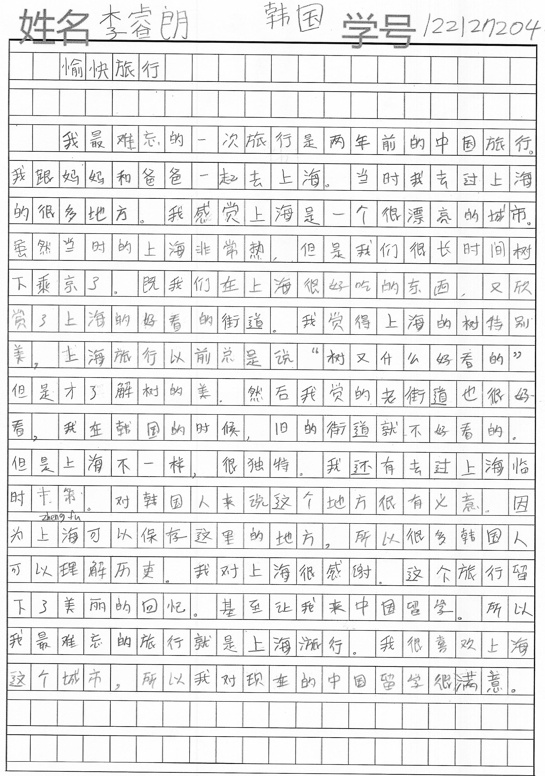 姓名 李睿朗 韩国 学号 122127204
愉快旅行
我最难忘的一次旅行是两年前的中国旅行。
我跟妈妈和爸爸一起去上海。当时我去过上海
的很多地方。我感觉上海是一个很漂亮的城市。
虽然当时的上海非常热，但是我们很长时间树
下乘京了。既我们在上海很好吃的东西，又欣
赏了上海的好看的街道。我觉得上海的树特别
美，上海旅行以前总是说“树又什么好看的”
但是才了解树的美。然后我觉的老街道也很好
看，我在韩国的时候，旧的街道就不好看的。
但是上海不一样，很独特。我还有去过上海临
时。对韩国人来说这个地方很有义意。因
zheng fu
为上海可以保存这里的地方，所以很多韩国人
可以理解历史。我对上海很感谢。这个旅行留
下了美丽的回忆。甚至让我来中国留学。所以
我最难忘的旅行就是上海旅行。我很喜欢上海
这个城市，所以我对现在的中国留学很满意。